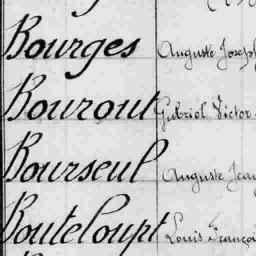 Bourges Auguste Joseph
Bourout Gabriel Victor
Bourseul Auguste Jean
Bouteloupt Louis Françoi